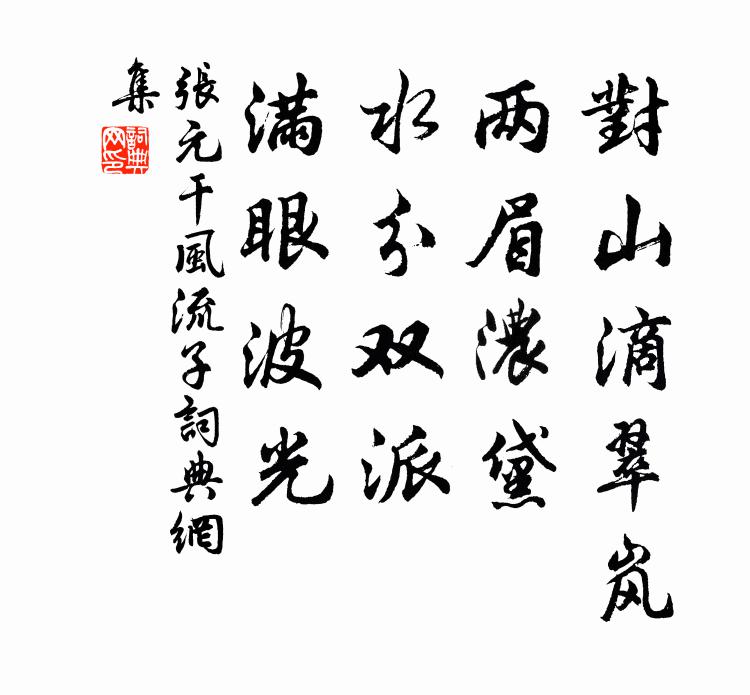 對山滴翠岚
两眉濃黛
水分双派
满眼波光
張元干風流子詞典網
集
詞典
网印